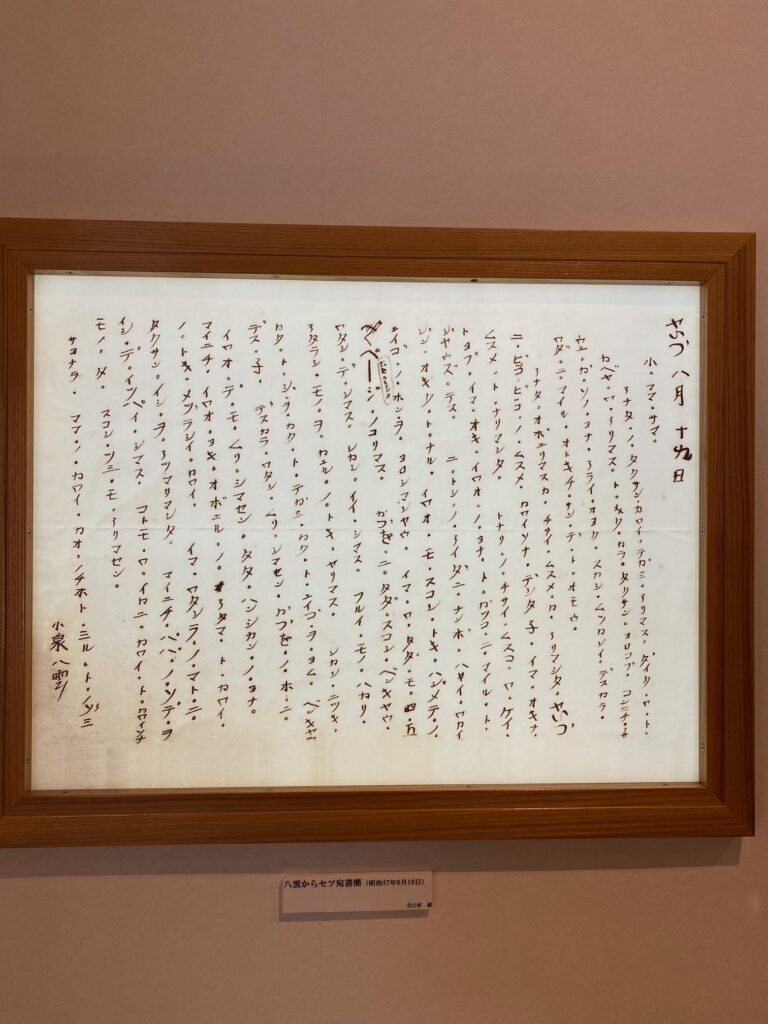 やいづ 八月 十九日
小・ママ・サマ。
アナタ・ノ・タクサン・カワイ・テガミ・アリマス。ダイク・ワ・ト・
カベヤ・ワ・アリマス・ト・キク・カラ・タクサン・ヨロコブ。コンニチ・
ウミ・ガ・ソノ・ヨナ・アライ・オヨグ・スカシ・ムツカシイ・デスカラ。
ワダ・ニ・マイル・オトキチ・サン・デ・ト・オモウ。
アナタ・オボエリマスカ・チサイ・ムスメ・ガ・アリマシタ・やいづ
ニ・ヒヨ・ビヨコ・ノ・ムスメ・カワイソナ・デシタ 子・イマ・オキナ・
ムスメ・ト・ナリマシタ。トナリ・ノ・チサイ・ムスコ・ワ・ケイ・
トヨブ・イマ・オキ・イワオ・ノ・ヨナ・ト・ガツコ・ニ・マイル・ト・
ジヤウズ・デス。ニ・トシ・ノ・アイダニ・ナンボ・ハヤイ・ワカイ
ジン・オキク・ト・ナル。イワオ・モ・スコシ・トキ・ハジメテ・ノ・
エイゴ・ノ・ホン・ヲ・ヨロシマシヤウ。イマ・ワ・タダ・モ・四・五
ページ・ノコリマス。かづを・ニ・タダ・スコシ・ベンキヤウ・
ワタシ・デ・シマス・シカシ・イイ・シマス。フルイ・モノ・バカリ・
アタラシ・モノ・ヲ・カエル・ノ・トキ・ヤリマス。シカシ・ニツキ・
カク・ト・ジ・ヲ・カク・ト・テガミ・カク・ト・エイゴ・ヲ・ヨム・ベンキヤウ
デス・子・デスカラ・ワタシ・ムリ・シマセン・かづを・ノ・ホ・ニ。
イワオ・デ・モ・ムリ・シマセン・タダ・ヘンシカン・ノ・ヨナ。
マイニチ・イワオ・ヨキ・オボエル・ノ・アタマ・ト・カワイ。
ノ・トキ・メヅラシイ・カワイ。イマ・ワタシラ・ノ・マト・ニ・
タクサン・イシ・ヲ・アツマリマシタ。マイニチ・パパ・ノ・ソデ・ヲ
イシ・デ・イツパイ・シマス。コトモ・ワ・イカニ・カワイ・ト・カワイノチ
モノ・ダ。スコシ・ツミ・モ・アリマセン。
サヨナラ・ママ・ノ・カワイ・カオ・ノチホト・ミル・ト・ノゾミ
小泉八雲
八雲からセツ宛書簡（明治37年8月19日）
北山家 蔵